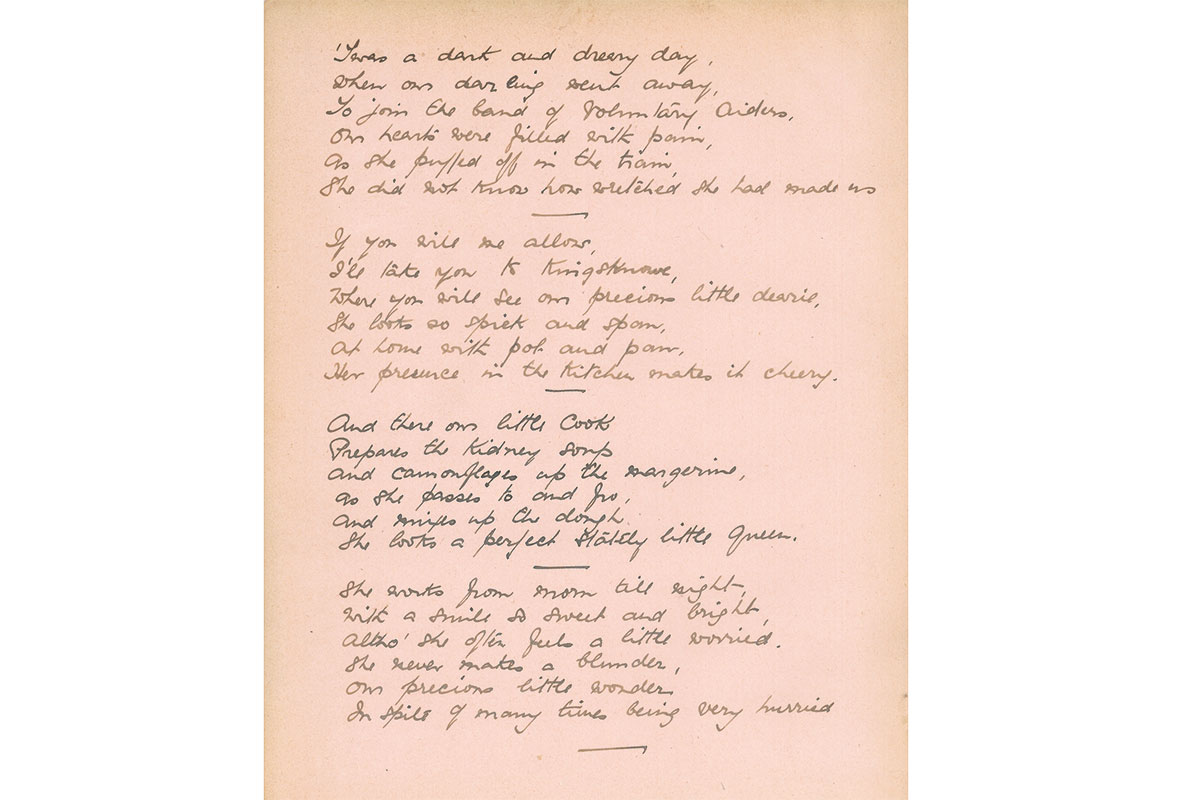 'Twas a dark and dreery day,
When our darling went away,
To join the band of Voluntary Aiders.
Our hearts were filled with pain,
As she puffed off in the train,
She did not know how wretched she had made us
If you will me allow,
I'll take you to Kingsknowe,
Where you will see our precious little dearie,
She looks so spick and span,
At home with pot and pan,
Her presence in the kitchen makes it cheery.
And there our little Cook
Prepares the kidney soup
And camouflages up the margerine,
As she passes to and fro,
And mixes up the dough
She looks a perfect stately little Queen.
She works from morn till night,
With a smile so sweet and bright,
Altho' she often feels a little worried.
She never makes a blunder,
Our precious little wonder
In spite of many times being very hurried